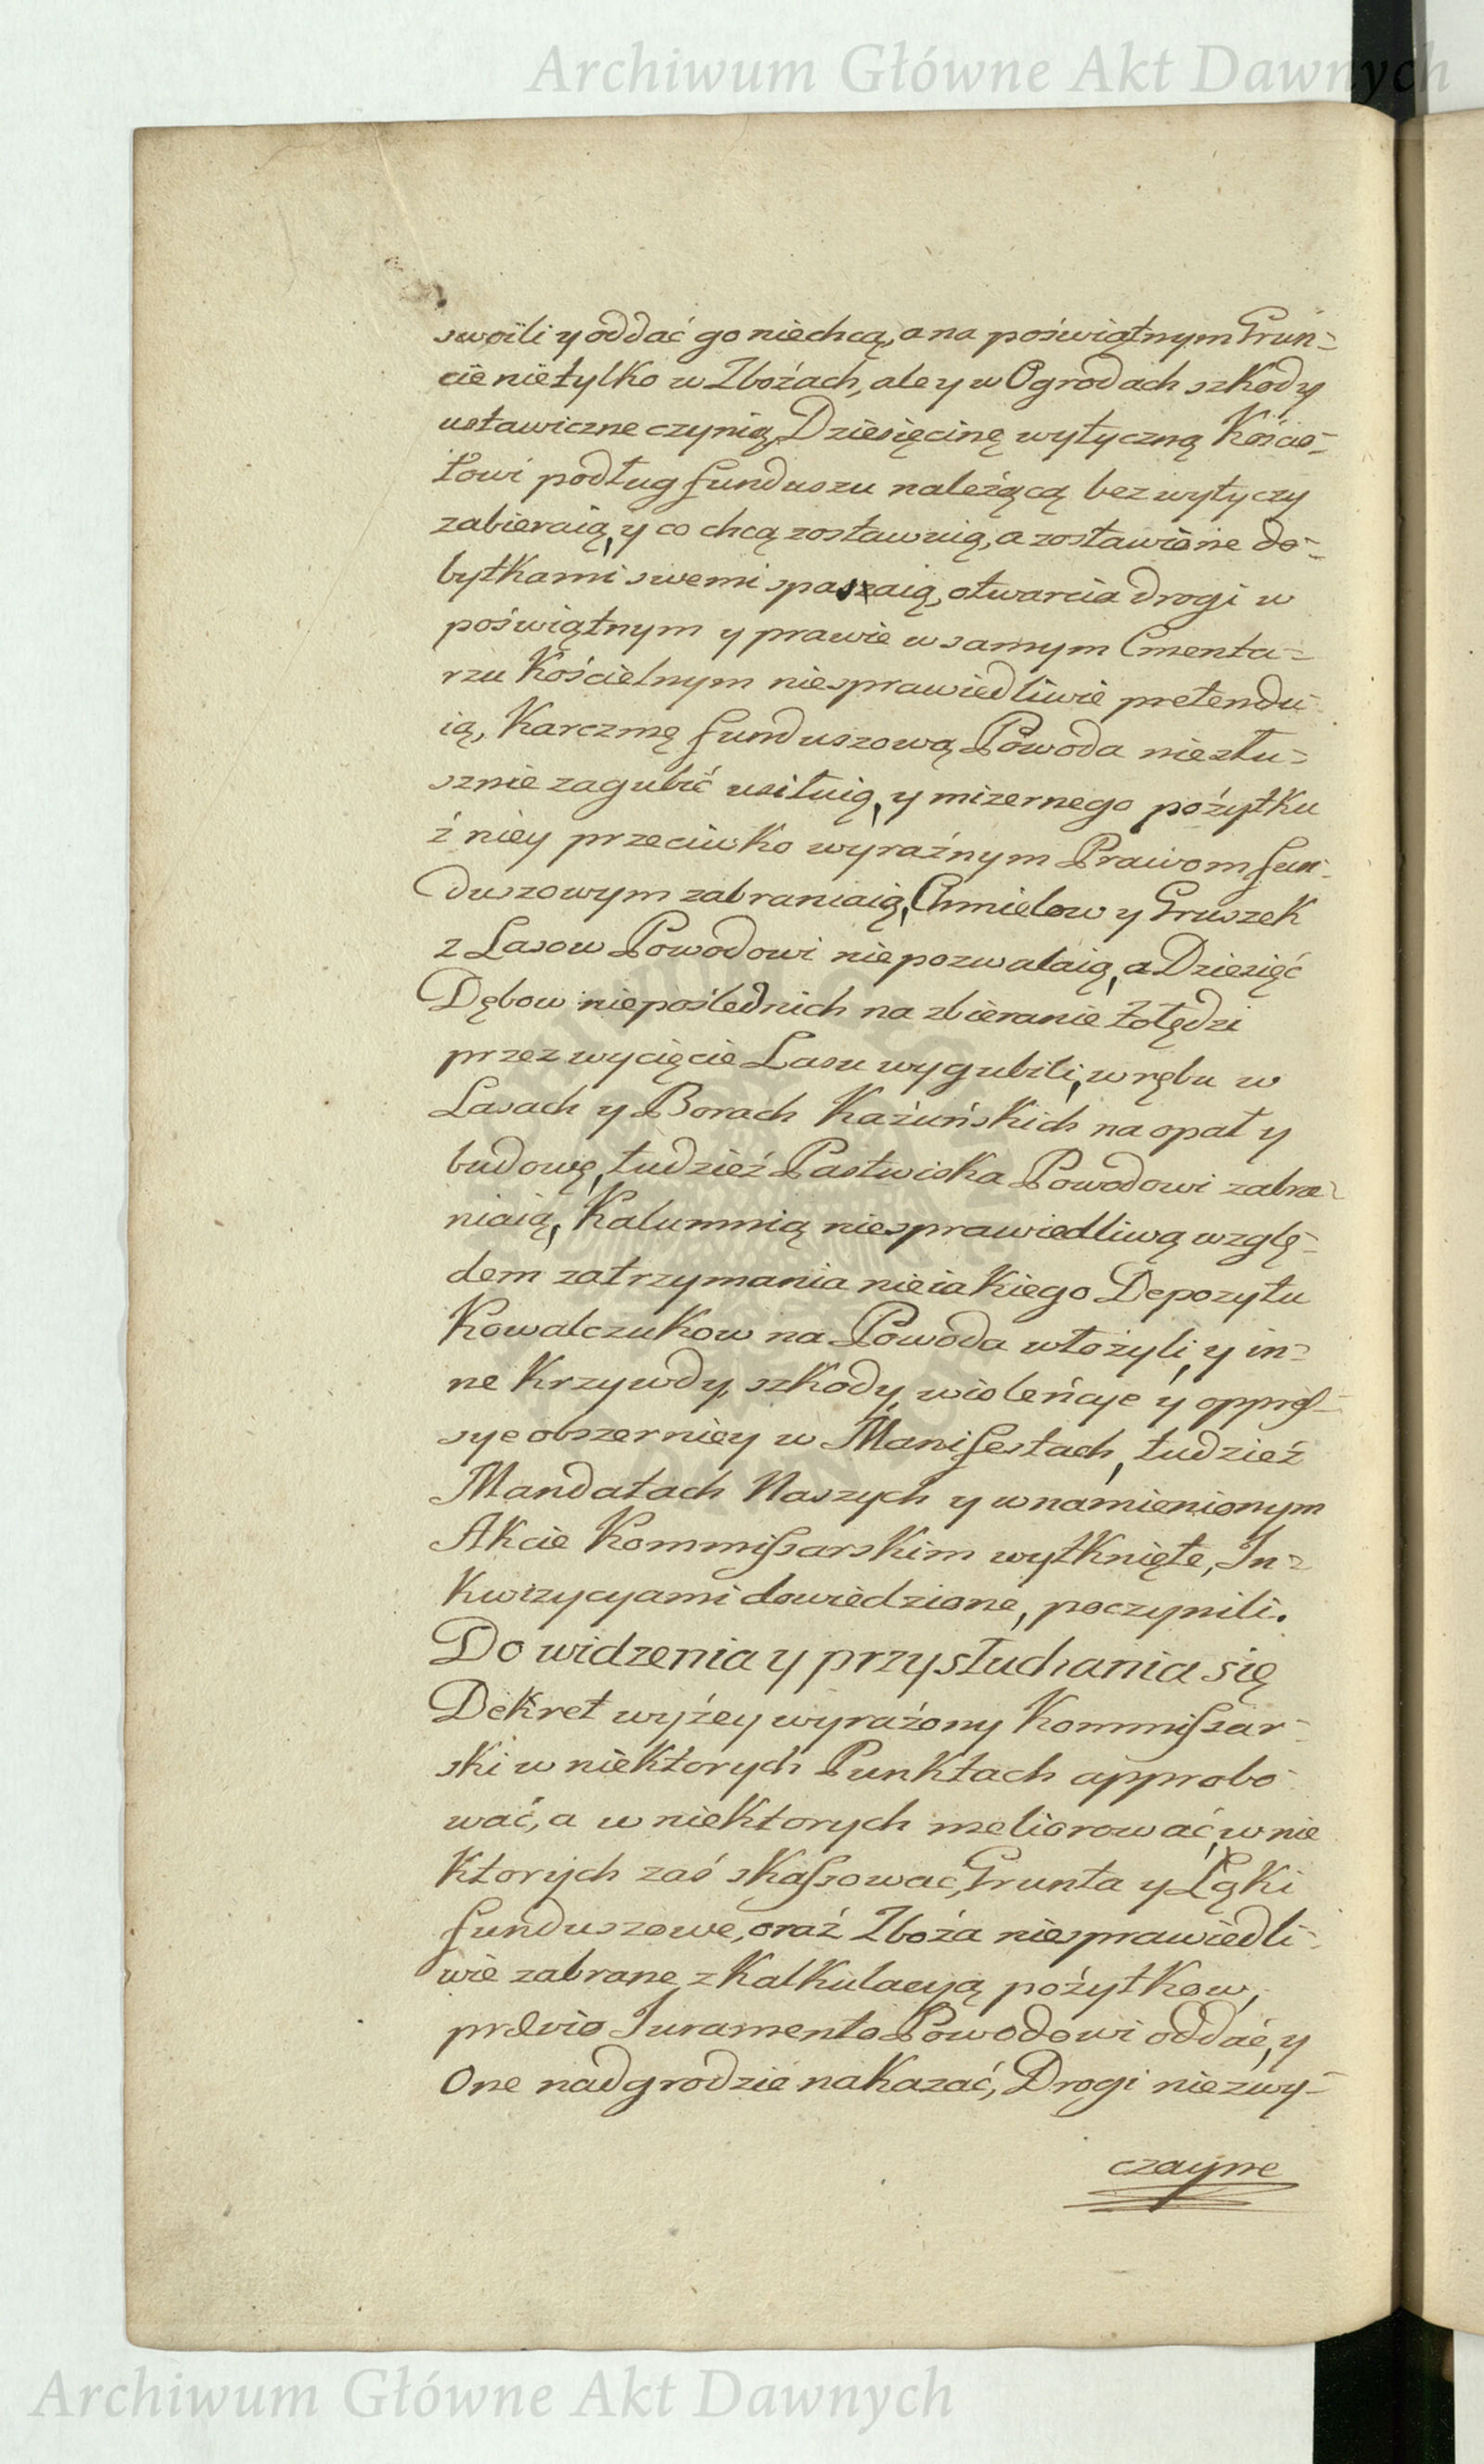 Archiwum Główne Akt Dawnych
swoili y oddać go niechcą, a na poświątnym Grun=
cie nietylko w Zbożach, ale y w Ogrodach szkody
ustawiczne czynią, Dziesięcinę wytyczną Kościo=
łowi podług funduszu należącą bez wytyczy
zabieraią, y co chcą zostawuią, a zostawione do=
bytkami swemi spaszaią, otwarcia drogi w
poświątnym y prawie w samym Cmenta=
rzu Kościelnym niesprawiedliwie pretendu=
ią, Karczmę funduszową Powoda niesłu=
sznie zagubić usiłuią, y mizernego pożytku
ź niey przeciwko wyraźnym Prawom fun=
duszowym zabraniaią, Chmielow y Gruszek
z Lasow Powodowi niepozwalaią, a Dziesięć
Dębow niepoślednich na zbieranie żołędzi
przez wycięcie Lasu wygubili, wrębu w
Lasach y Borach Kazuńskich na opał y
budowę, tudzież Pastwiska Powodowi zabra=
niaią, Kalumnią niesprawiedliwą wzglę=
dem zatrzymania nieiakiego Depozytu
Kowalczukow na Powoda włożyli, y in=
ne Krzywdy, szkody, wioleńcye y oppres=
sye obszerniey w Manifestach, tudzież
Mandatach Naszych y wnamienionym
Akcie Kommissarskim wytknięte, In=
kwizycyami dowiedzione, poczynili.
Do widzenia y przysłuchania się
Dekret wyżey wyrażony Kommissar=
ski w niektorych Punktach approbo=
wać, a w niektorych meliorować, w nie
ktorych zaś skassować, Grunta y Łąki
funduszowe, oraź Zboża niesprawiedli=
wie zabrane z Kalkulacyją pożytkow,
prævio Juramento Powodowi oddać, y
One nadgrodzić nakazać, Drogi niezwy=
czayne
Archiwum Główne Akt Dawnych